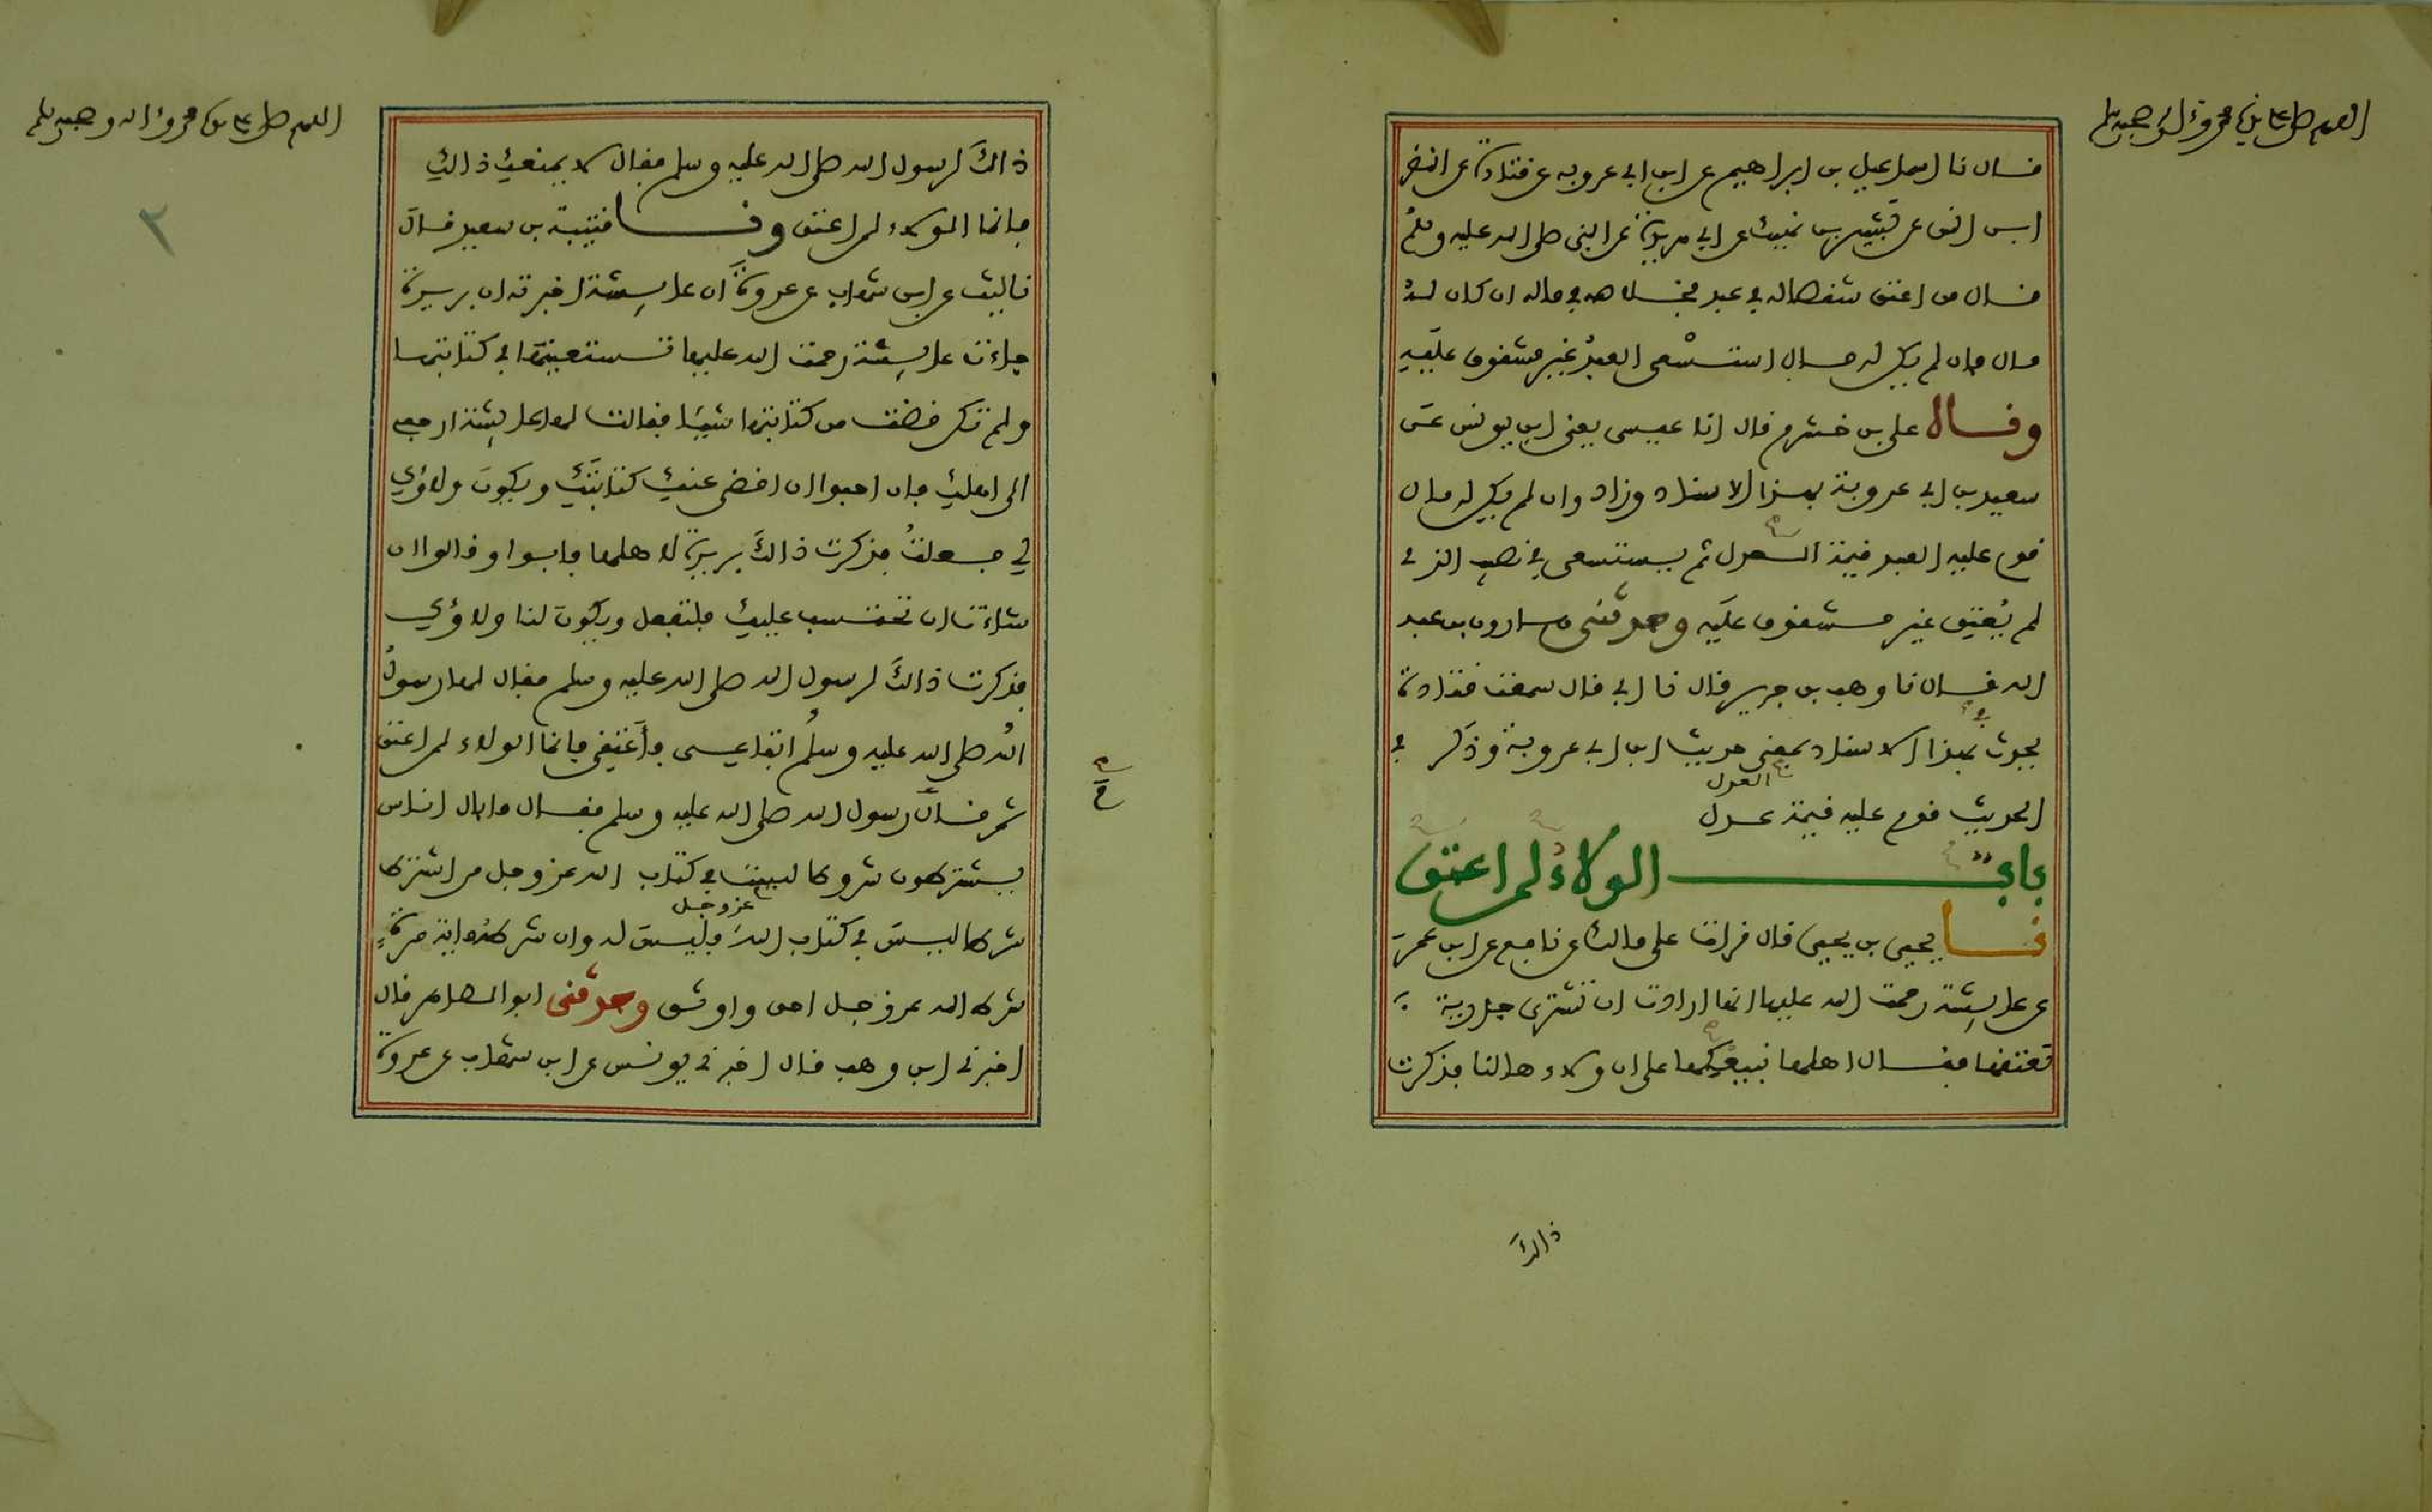 اللهم صل على سيدنا محمد وءاله وصحبه وسلم
قال نا اسماعيل بن ابراهيم عن ابن ابي عروبه عن قتادة عن النضر
ابن انس عن بشير بن نهيك عن ابي هريرة عن النبي صلى الله عليه وسلم
قال من اعتق شقصا له في عبد فخلاصه في ماله ان كان له
مال فان لم يكن له مال استسعى العبد غير مشقوق عليه
وقال علي بن خشرم قال انا عيسى يعني ابن يونس عن
سعيد بن ابي عروبة بهذا الاسناد وزاد وان لم يكن له مال
قوم عليه العبد قيمة العدل ثم يستسعى في نصيب الذي
لم يُعتق غير مشقوق عليه وحدثني هارون بن عبد
الله قال نا وهب بن جرير قال نا ابي قال سمعت قتادة
يحدث بهذا الاسناد بمعنى حديث ابن ابي عروبة وذكر في
الحديث قوم عليه قيمة عدل
العدل
باب الولاءُ لمن اعتق
نا يحيى بن يحيى قال قرات على مالك عن نافع عن ابن عمر
عن عايشة رحمت الله عليها انها ارادت ان تشترى جارية
تعتقها فقال اهلها نبيعكها على ان ولاءها لنا فذكرت
ذالكَ
اللهم صل على سيدنا محمد وءاله وصحبه وسلم
٢
ذالكَ لرسول الله صلى الله عليه وسلم فقال لا يمنعك ذالك
فانما الولاء لمن اعتق ونا قتيبة بن سعيد قال
نا ليث عن ابن شهاب عن عروة ان عايشة اخبرته ان بريرة
جاءت عايشة رحمت الله عليها تستعينها في كتابتها
ولم تكن قضت من كتابتها شيئا فقالت لها عايشة ارجعي
الى اهلك فان احبوا ان اقضي عنك كتابتك ويكون ولاؤك
لي فعلتُ فذكرت ذالكَ بريرة لاهلها فابوا وقالوا ان
شاءت ان تحتسب عليك فلتفعل ويكون لنا ولاؤك
فذكرت ذالكَ لرسول الله صلى الله عليه وسلم فقال لها رسولُ
الله صلى الله عليه وسلم ابتاعي فأعتقي فانما الولاء لمن اعتق
ثم قام رسول الله صلى الله عليه وسلم فقال ما بال اناس
يشترطون شروطا ليست في كتاب الله عز وجل من اشترط
شرطا ليس في كتاب الله فليس له وان شرطه ماية مرة
عز وجل
شرط الله عز وجل احق واوثق وحدثني ابو الطاهر قال
اخبرني ابن وهب قال اخبرني يونس عن ابن شهاب عن عروة